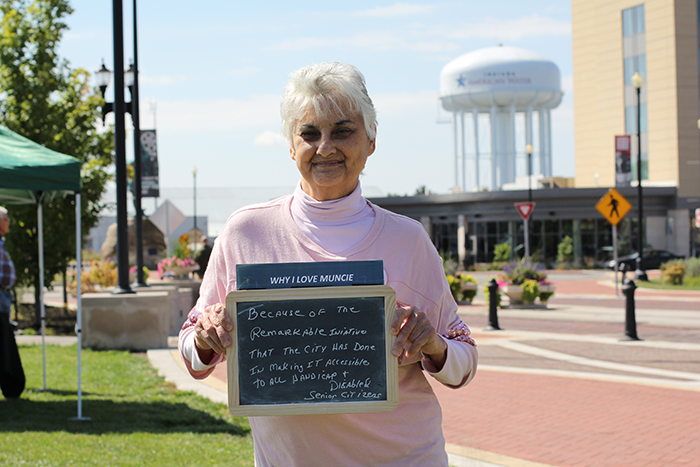 INDIANA
AMERICAN WATER
WHY I LOVE MUNCIE
Because of the
Remarkable Iniative
That The City Has Done
In Making IT Accessible
To ALL Handicap +
Disabled
Senior Citizens